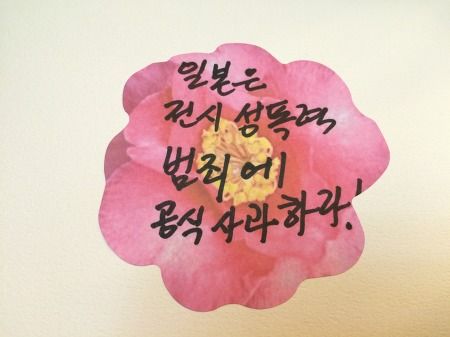 일본은
전시 성폭력
범죄에
공식 사과하라!